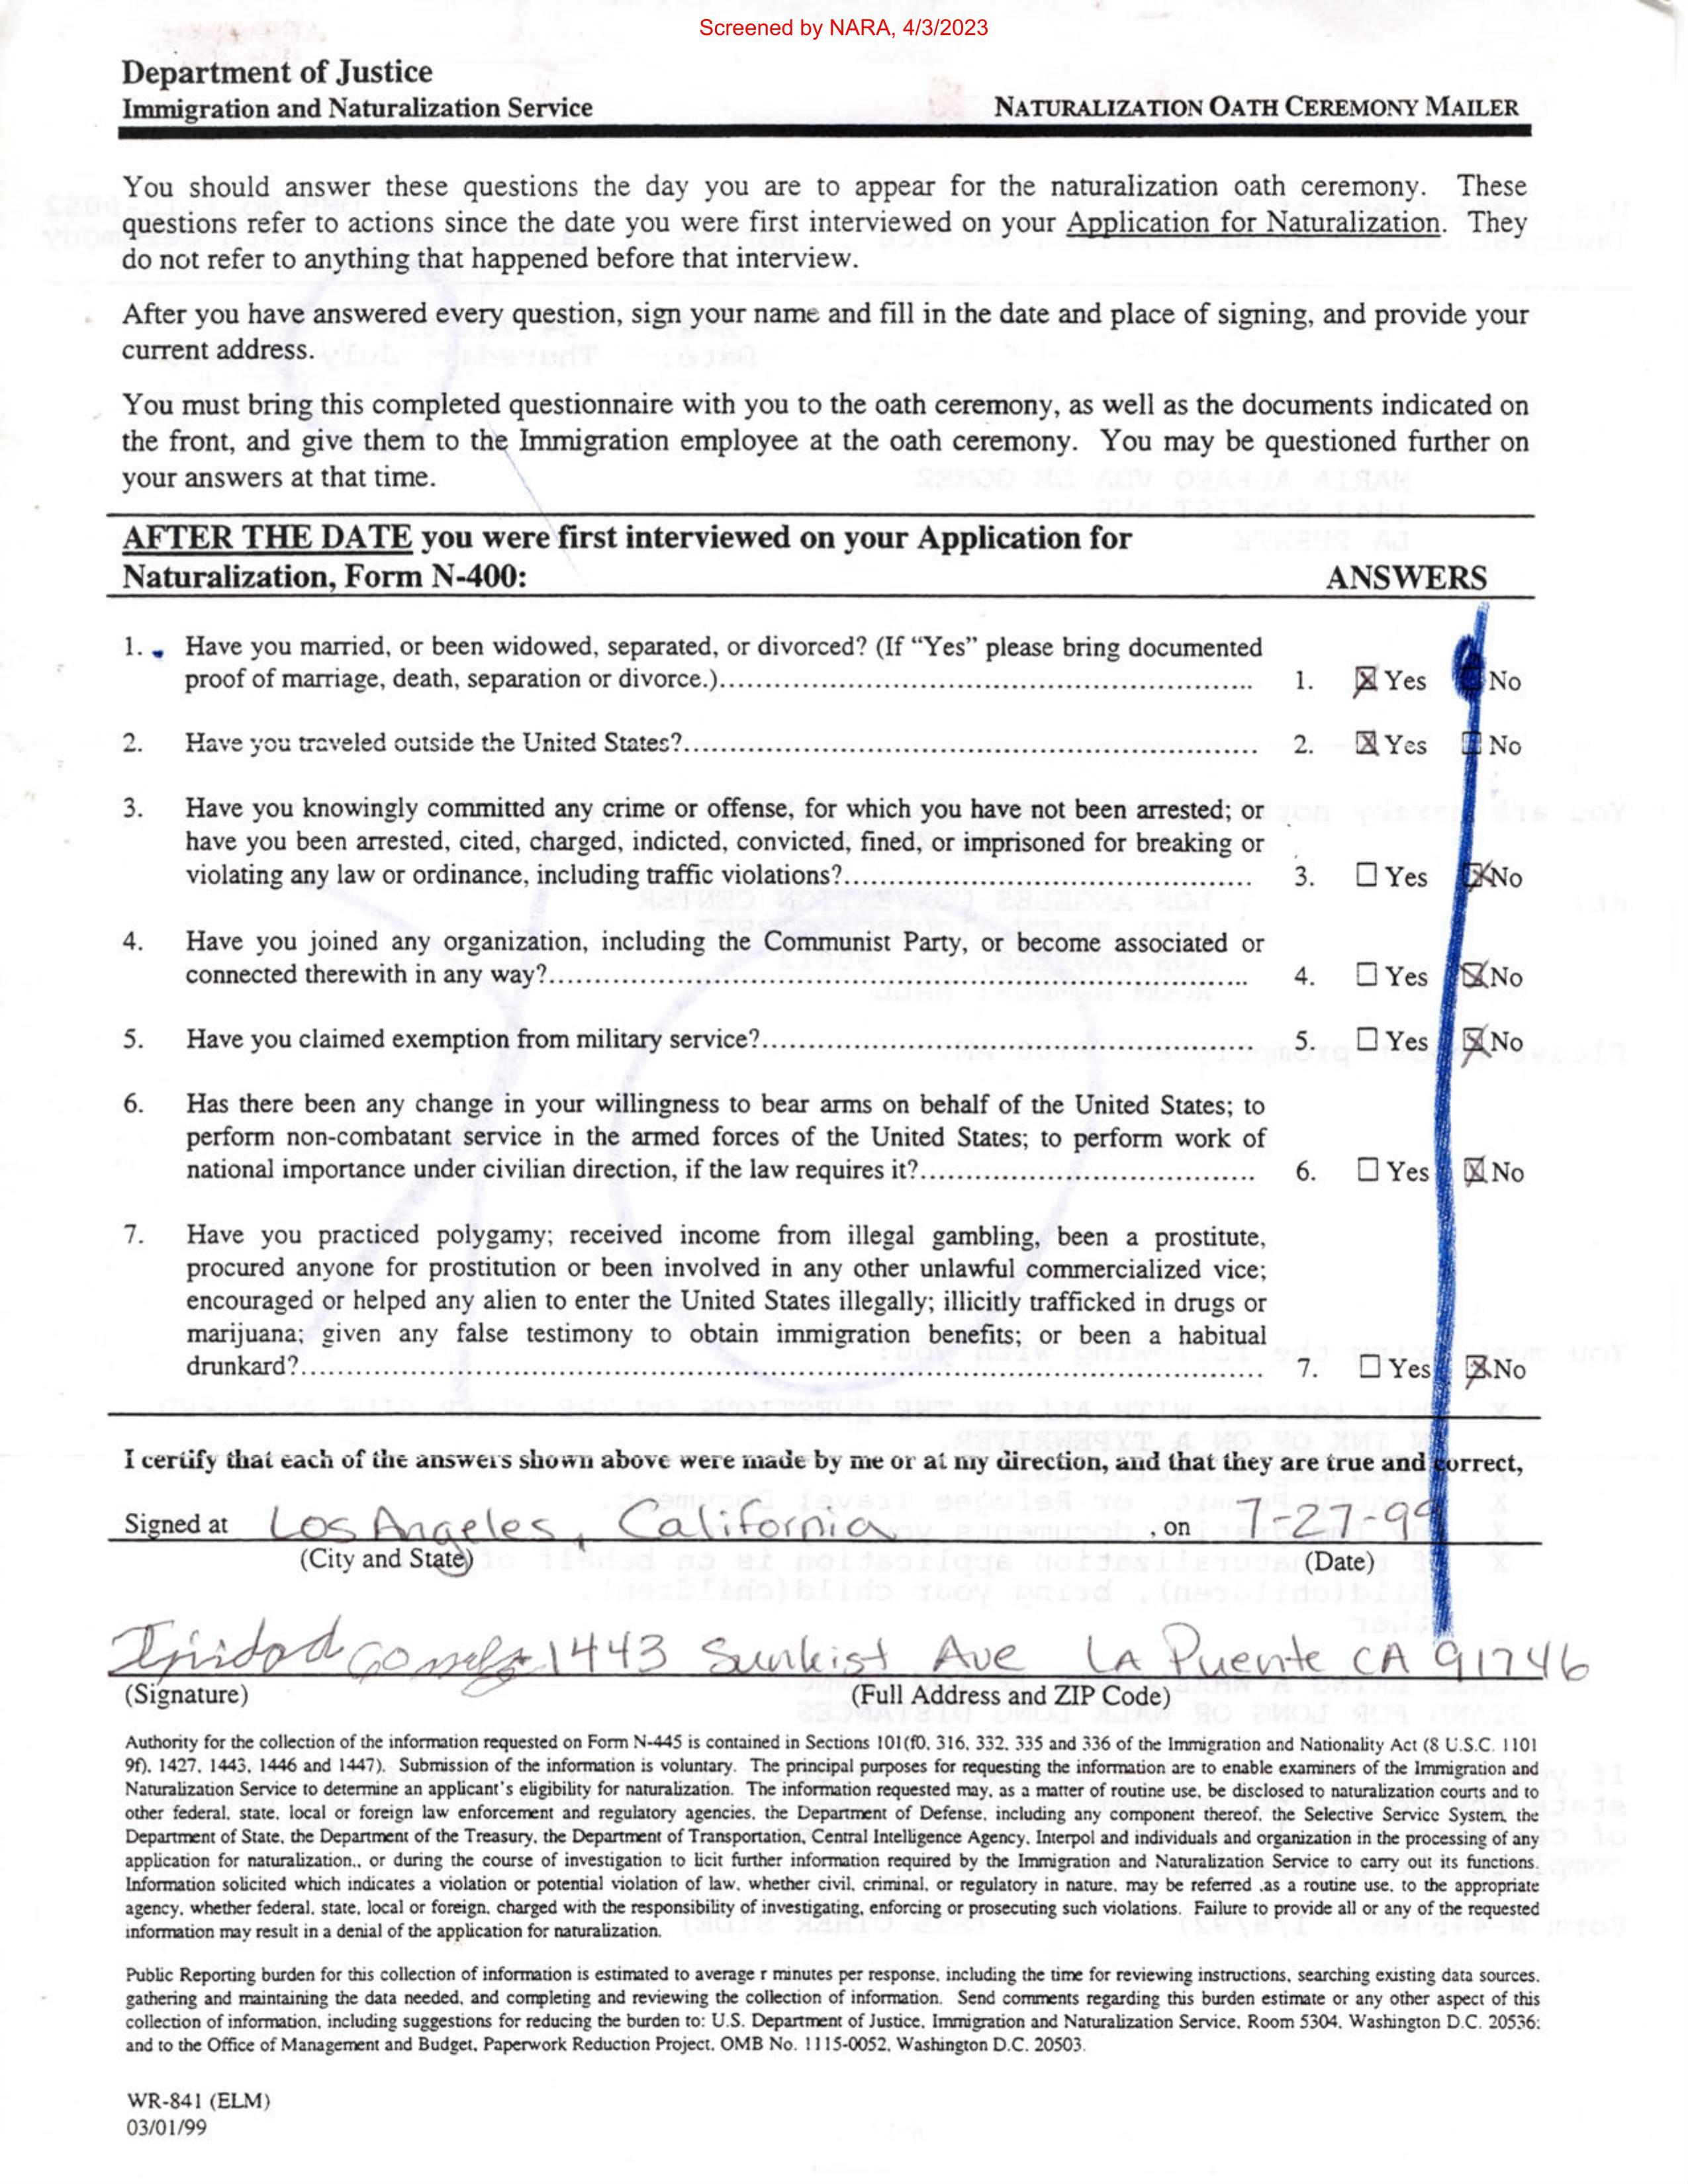 Screened by NARA, 4/3/2023
Department of Justice
Immigration and Naturalization Service
NATURALIZATION OATH CEREMONY MAILER
You should answer these questions the day you are to appear for the naturalization oath ceremony. These
questions refer to actions since the date you were first interviewed on your Application for Naturalization. They
do not refer to anything that happened before that interview.
After you have answered every question, sign your name and fill in the date and place of signing, and provide your
current address.
You must bring this completed questionnaire with you to the oath ceremony, as well as the documents indicated on
the front, and give them to the Immigration employee at the oath ceremony. You may be questioned further on
your answers at that time.
AFTER THE DATE you were first interviewed on your Application for
Naturalization, Form N-400: ANSWERS
1. Have you married, or been widowed, separated, or divorced? (If “Yes” please bring documented
proof of marriage, death, separation or divorce.)........ 1. ☒ Yes ☐ No
2. Have you traveled outside the United States?........ 2. ☒ Yes ☐ No
3. Have you knowingly committed any crime or offense, for which you have not been arrested; or
have you been arrested, cited, charged, indicted, convicted, fined, or imprisoned for breaking or
violating any law or ordinance, including traffic violations?........ 3. ☐ Yes ☒ No
4. Have you joined any organization, including the Communist Party, or become associated or
connected therewith in any way?........ 4. ☐ Yes ☒ No
5. Have you claimed exemption from military service?........ 5. ☐ Yes ☒ No
6. Has there been any change in your willingness to bear arms on behalf of the United States; to
perform non-combatant service in the armed forces of the United States; to perform work of
national importance under civilian direction, if the law requires it?........ 6. ☐ Yes ☒ No
7. Have you practiced polygamy; received income from illegal gambling, been a prostitute,
procured anyone for prostitution or been involved in any other unlawful commercialized vice;
encouraged or helped any alien to enter the United States illegally; illicitly trafficked in drugs or
marijuana; given any false testimony to obtain immigration benefits; or been a habitual
drunkard?........ 7. ☐ Yes ☒ No
I certify that each of the answers shown above were made by me or at my direction, and that they are true and correct,
Signed at Los Angeles, California , on 7-27-99
(City and State) (Date)
1443 Sunkist Ave LA Puente CA 91746
(Signature) (Full Address and ZIP Code)
Authority for the collection of the information requested on Form N-445 is contained in Sections 101(f0, 316, 332, 335 and 336 of the Immigration and Nationality Act (8 U.S.C. 1101
9f), 1427, 1443, 1446 and 1447). Submission of the information is voluntary. The principal purposes for requesting the information are to enable examiners of the Immigration and
Naturalization Service to determine an applicant's eligibility for naturalization. The information requested may, as a matter of routine use, be disclosed to naturalization courts and to
other federal, state, local or foreign law enforcement and regulatory agencies, the Department of Defense, including any component thereof, the Selective Service System, the
Department of State, the Department of the Treasury, the Department of Transportation, Central Intelligence Agency, Interpol and individuals and organization in the processing of any
application for naturalization., or during the course of investigation to licit further information required by the Immigration and Naturalization Service to carry out its functions.
Information solicited which indicates a violation or potential violation of law, whether civil, criminal, or regulatory in nature, may be referred ,as a routine use, to the appropriate
agency, whether federal, state, local or foreign, charged with the responsibility of investigating, enforcing or prosecuting such violations. Failure to provide all or any of the requested
information may result in a denial of the application for naturalization.
Public Reporting burden for this collection of information is estimated to average r minutes per response, including the time for reviewing instructions, searching existing data sources,
gathering and maintaining the data needed, and completing and reviewing the collection of information. Send comments regarding this burden estimate or any other aspect of this
collection of information, including suggestions for reducing the burden to: U.S. Department of Justice, Immigration and Naturalization Service, Room 5304, Washington D.C. 20536:
and to the Office of Management and Budget, Paperwork Reduction Project, OMB No. 1115-0052, Washington D.C. 20503.
WR-841 (ELM)
03/01/99